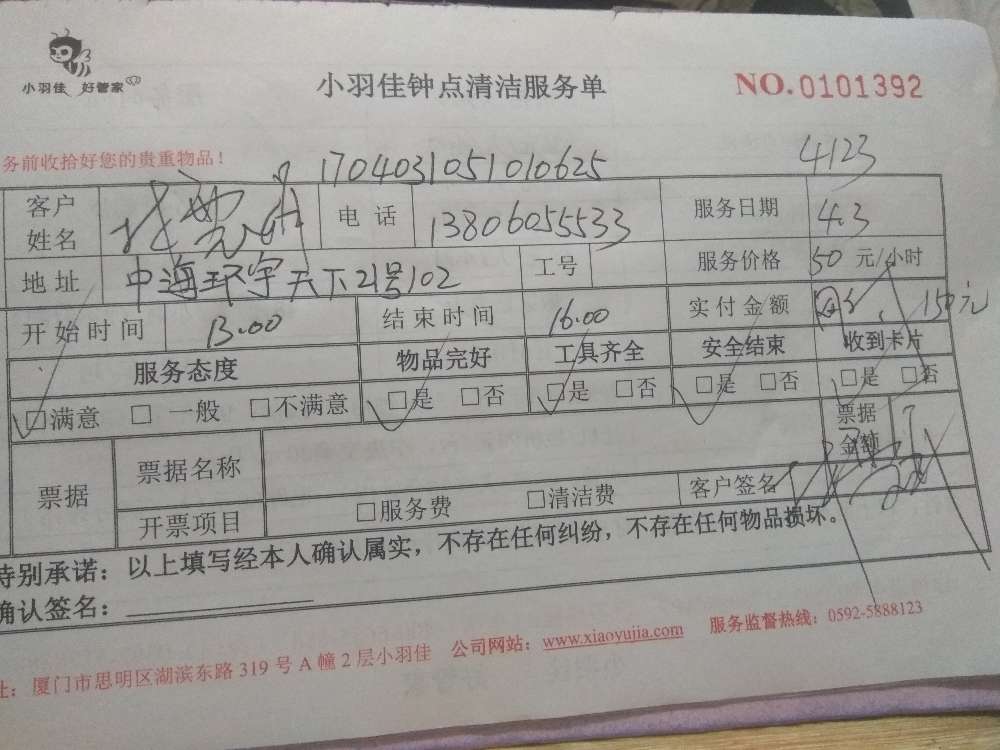 小羽佳 好管家
小羽佳钟点清洁服务单
NO.0101392
务前收拾好您的贵重物品！
1704031051010625
4123
客户姓名
电 话 13806055533
服务日期 4.3
地 址 中海环宇天下21号102
工号
服务价格 50 元/小时
开始时间 13.00
结束时间 16.00
实付金额 150元
服务态度 物品完好 工具齐全 安全结束 收到卡片
□满意 □ 一般 □不满意 □是 □否 □是 □否 □是 □否 □是 □否
票据 票据名称 票据金额
开票项目 □服务费 □清洁费 客户签名
特别承诺：以上填写经本人确认属实，不存在任何纠纷，不存在任何物品损坏。
确认签名：
址：厦门市思明区湖滨东路 319 号 A 幢 2 层小羽佳 公司网站：www.xiaoyujia.com 服务监督热线：0592-5888123